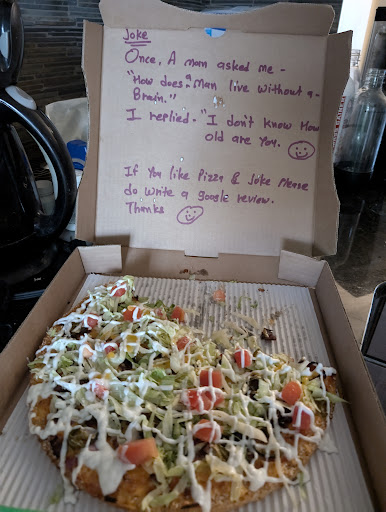 Joke
Once, A man asked me -
"How does a Man live without a -
Brain."
I replied - "I don't know How
old are You.
If You like Pizza & Joke Please
do write a google review.
Thanks